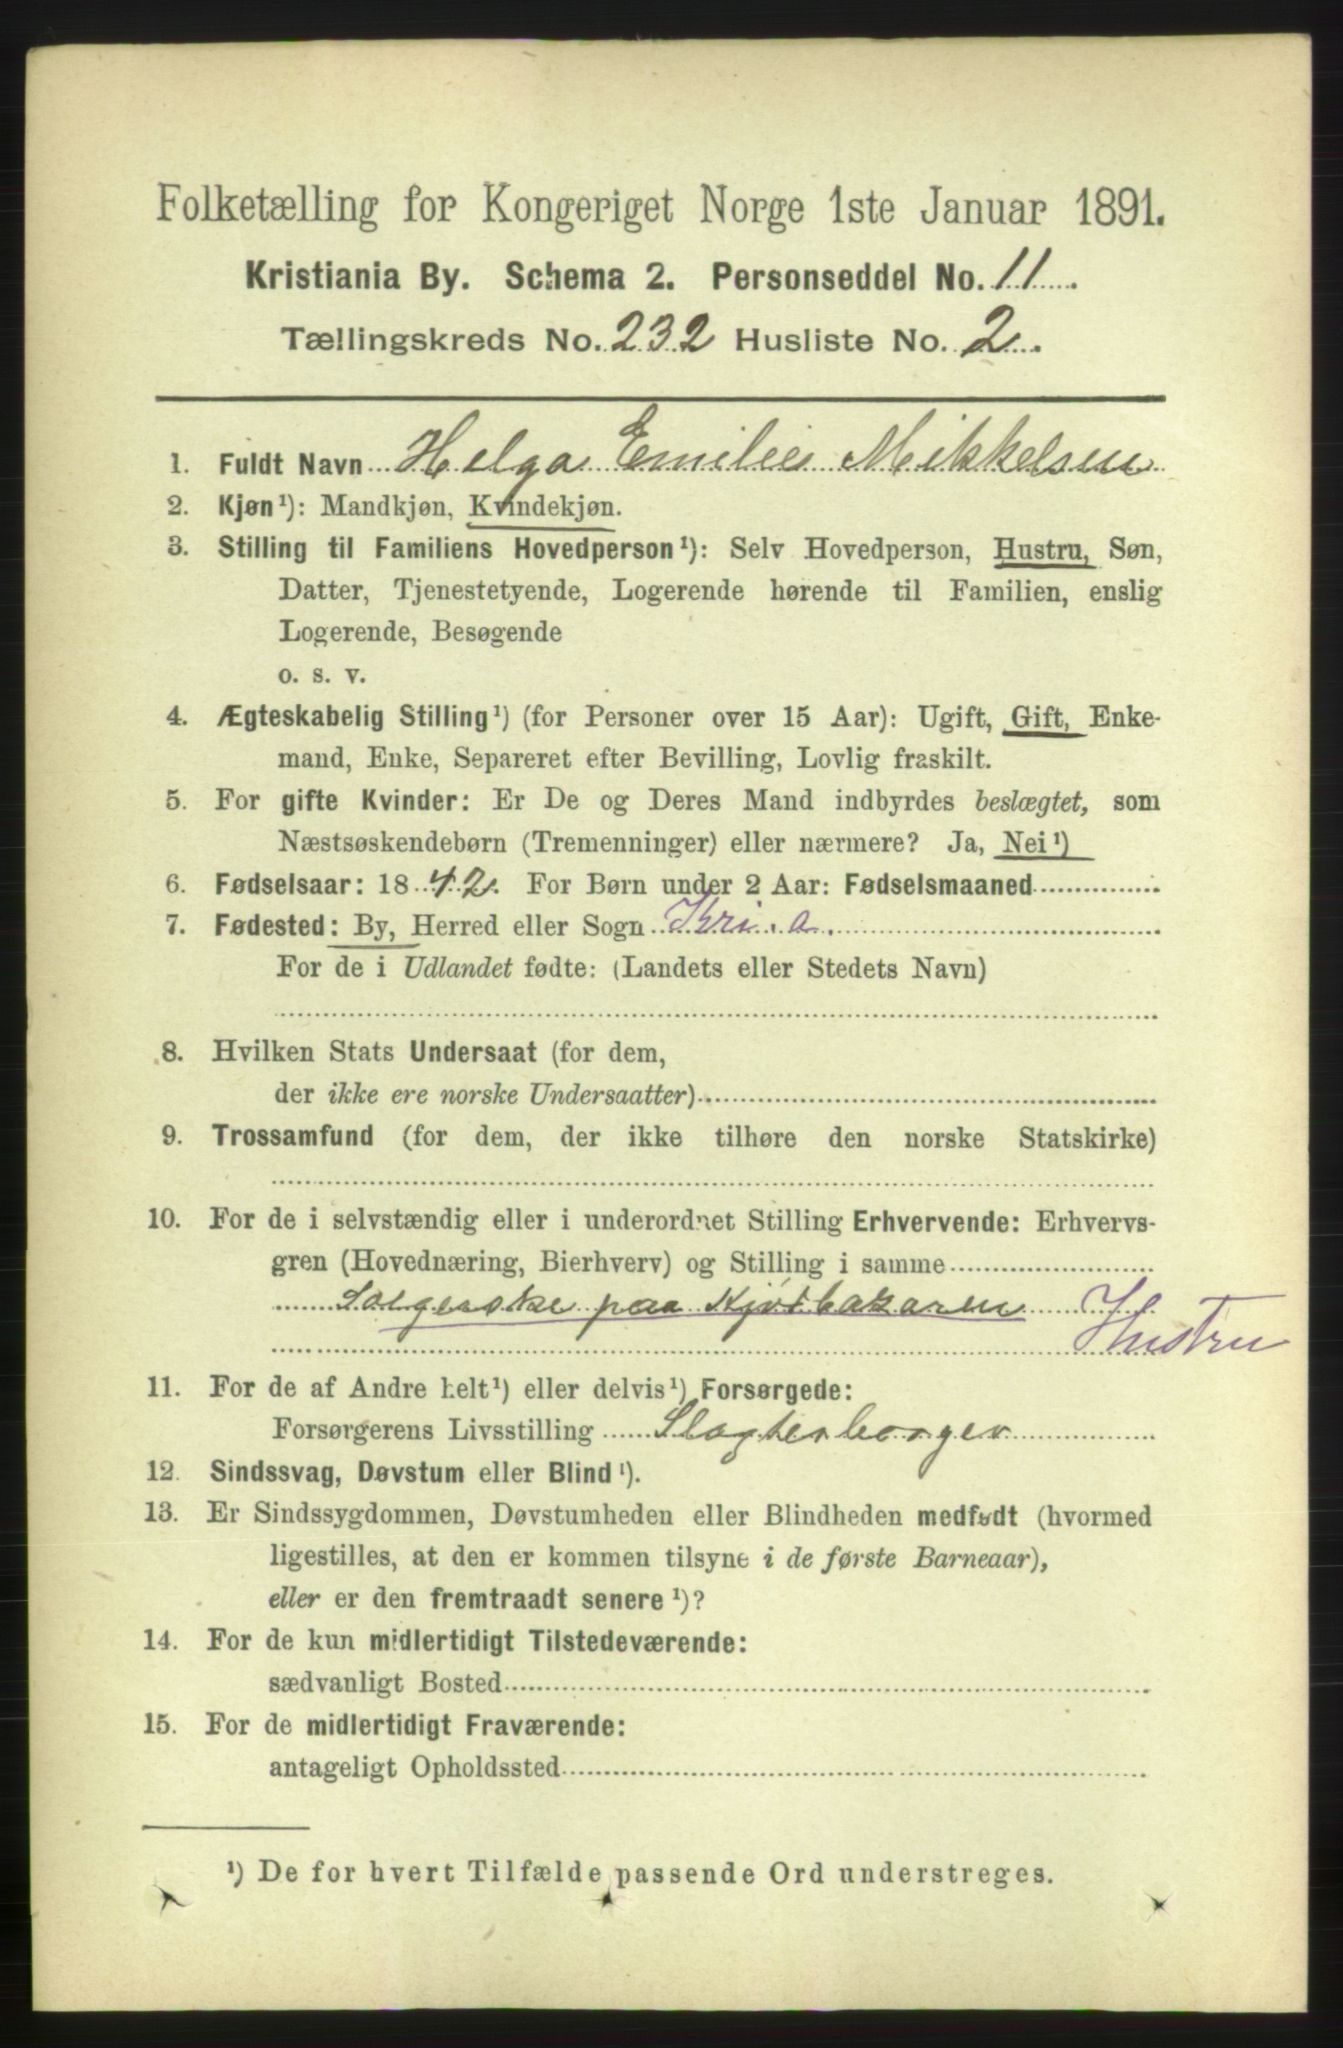 Folketælling for Kongeriget Norge 1ste Januar 1891.
Kristiania By. Schema 2. Personseddel No. 11.
Tællingskreds No. 232 Husliste No. 2.
1. Fuldt Navn Helga Emilie Mikkelsen
2. Kjøn¹): Mandkjøn, Kvindekjøn.
3. Stilling til Familiens Hovedperson¹): Selv Hovedperson, Hustru, Søn,
Datter, Tjenestetyende, Logerende hørende til Familien, enslig
Logerende, Besøgende
o. s. v.
4. Ægteskabelig Stilling¹) (for Personer over 15 Aar): Ugift, Gift, Enke-
mand, Enke, Separeret efter Bevilling, Lovlig fraskilt.
5. For gifte Kvinder: Er De og Deres Mand indbyrdes beslægtet, som
Næstsøskendebørn (Tremenninger) eller nærmere? Ja, Nei¹)
6. Fødselsaar: 1842. For Børn under 2 Aar: Fødselsmaaned
7. Fødested: By, Herred eller Sogn Kri.a.
For de i Udlandet fødte: (Landets eller Stedets Navn)
8. Hvilken Stats Undersaat (for dem,
der ikke ere norske Undersaatter)
9. Trossamfund (for dem, der ikke tilhøre den norske Statskirke)
10. For de i selvstændig eller i underordnet Stilling Erhvervende: Erhvervs-
gren (Hovednæring, Bierhverv) og Stilling i samme
Sælgerske paa Kjøtbazaren
Hustru
11. For de af Andre helt¹) eller delvis¹) Forsørgede:
Forsørgerens Livsstilling Slagterborger
12. Sindssvag, Døvstum eller Blind¹).
13. Er Sindssygdommen, Døvstumheden eller Blindheden medfødt (hvormed
ligestilles, at den er kommen tilsyne i de første Barneaar),
eller er den fremtraadt senere¹)?
14. For de kun midlertidigt Tilstedeværende:
sædvanligt Bosted
15. For de midlertidigt Fraværende:
antageligt Opholdssted
¹) De for hvert Tilfælde passende Ord understreges.